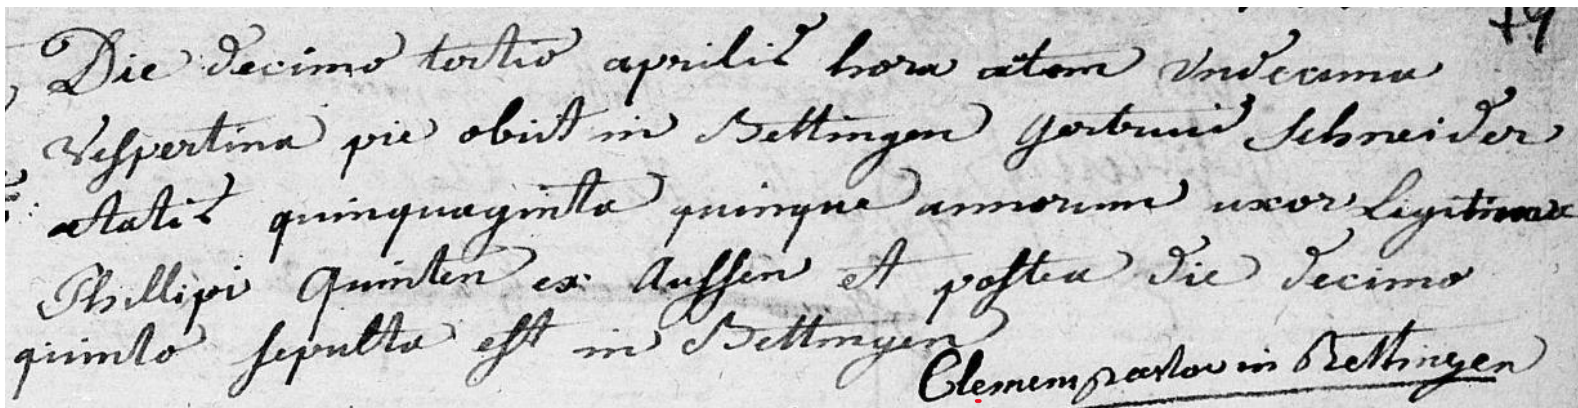 79
Die decimo tertio aprilis hora atem Undecima
Vespertina pie obiit in Bettingen Gertrud Schneider
ætatis quinquaginta quinque annorum uxor Legitima
Phillipi Quinten ex Aussen et postea die decimo
quinto sepulta est in Bettingen
Clemem pastor in Bettingen